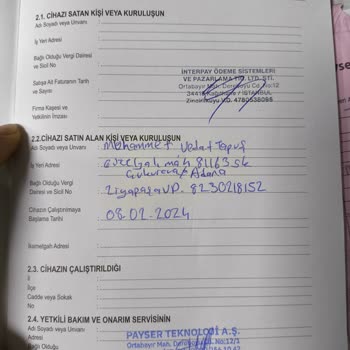 2.1. CİHAZI SATAN KİŞİ VEYA KURULUŞUN
Adı Soyadı veya Unvanı
İş Yeri Adresi
Bağlı Olduğu Vergi Dairesi
ve Sicil No
Satışa Ait Faturanın Tarih
ve Sayısı
INTERPAY ÖDEME SİSTEMLERİ
VE PAZARLAMA TİC. LTD. ŞTİ.
Ortabayır Mah. No:12
İSTANBUL
Zincirlikuyu V.D. 4780538086
Firma Kaşesi ve
Yetkilinin İmzası
2.2.CİHAZI SATIN ALAN KİŞİ VEYA KURULUŞUN
Adı Soyadı veya Unvanı Mehammet Vedat
İş Yeri Adresi Güzelyalı mah 81163 sk
Çukurova / Adana
Bağlı Olduğu Vergi
Dairesi ve Sicil No Ziyapaşa VD. 8230218152
Cihazın Çalıştırılmaya
Başlama Tarihi 08.02.2024
İkametgah Adresi
2.3. CİHAZIN ÇALIŞTIRILDIĞI
İl
İlçe
Cadde veya Sokak
No
2.4. YETKİLİ BAKIM VE ONARIM SERVİSİNİN
Adı Soyadı veya Unvanı PAYSER TEKNOLOJİ A.Ş.
Adresi Ortabayır Mah. No:12/1
Bağlı Olduğu